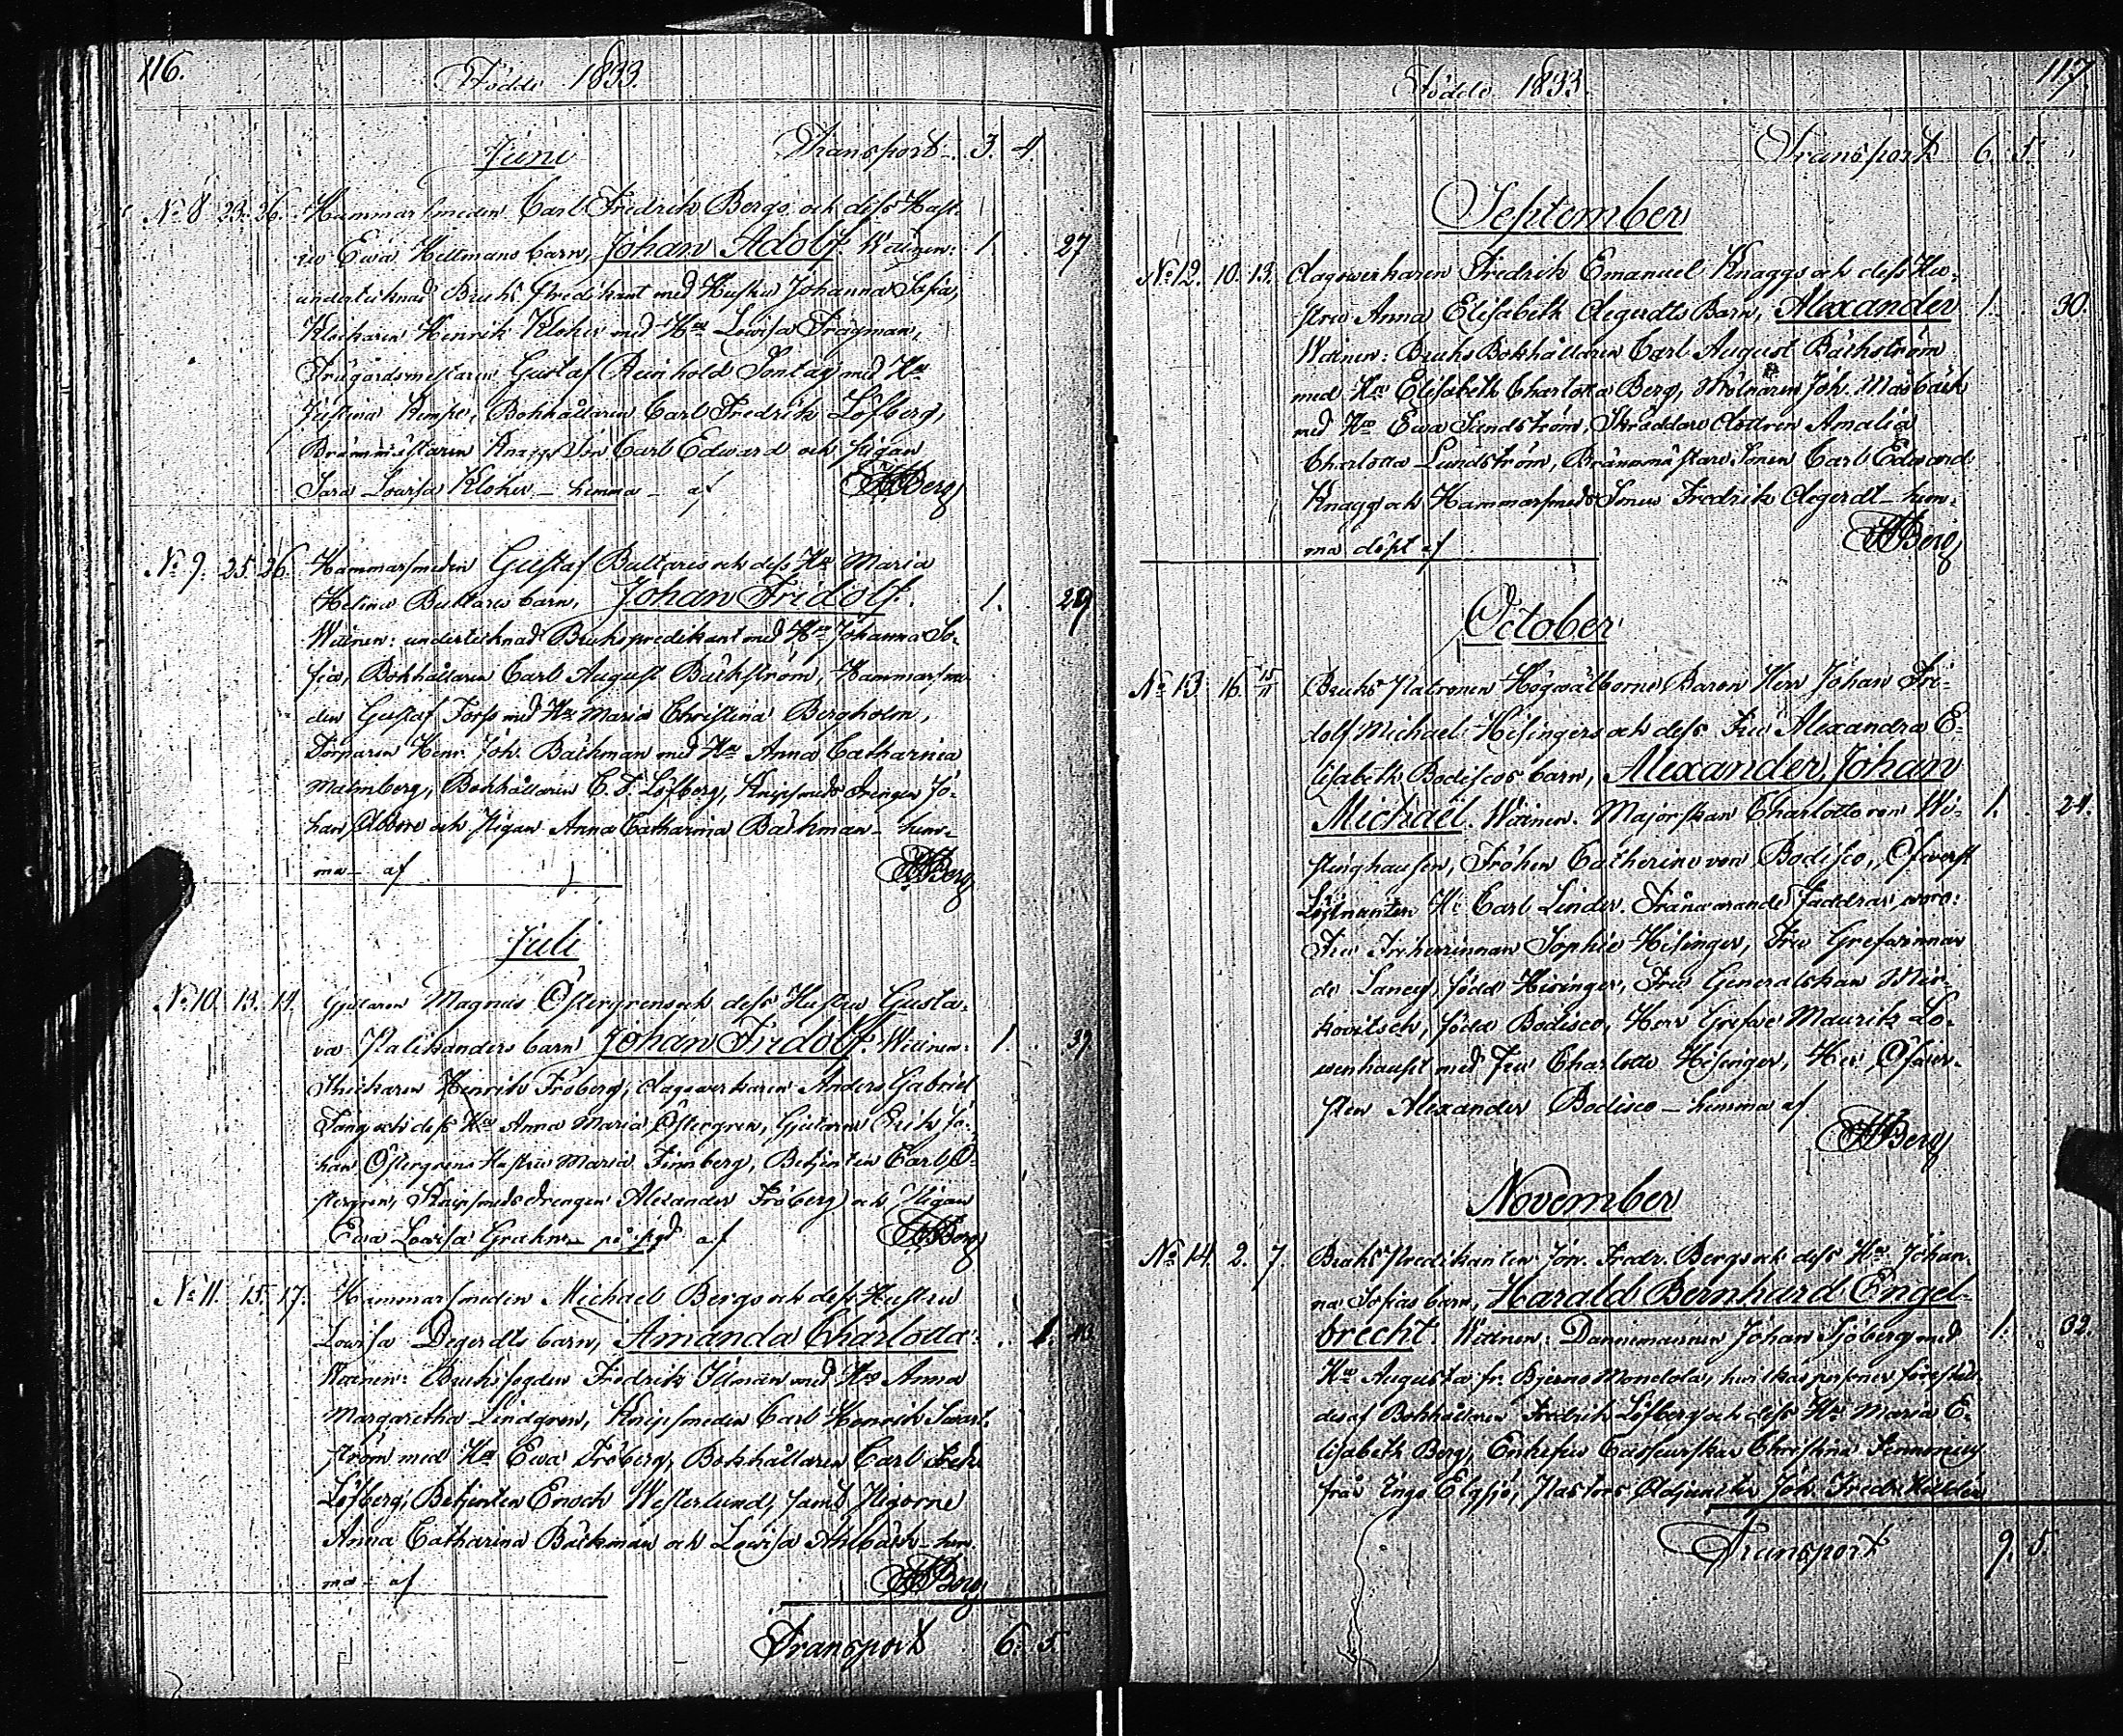 116.
Födde 1833.
Juni Transport 3. 4.
No 8 23. 26. Hammarsmeden Carl Fredrik Bergs och dess Hust-
ru Ewa Hellmans barn, Johan Adolf. Wittnen: 1. 27
undertecknad Bruks Predikant med Hustru Johanna Sofia,
Klockaren Henrik Kloher med Hu Lowisa Trägman,
Trägårdsmestaren Gustaf Reinhold Sontag med Hu
Justina Bokhållaren Carl Fredrik Löfberg,
Brännmästaren Knaggs Son Carl Edward och Pigan
Sara Lowisa Kloher – hemma – af FBerg
No 9. 25. 26. Hammarsmeden Gustaf Bultars och dess Hu Maria
Helena Bultars barn, Johan Fridolf. 1. 29
Wittnen: undertecknad Brukspredikant med Hu Johanna So-
fia, Bokhållaren Carl August Bäckström, Hammarsme-
den Gustaf Forss med Hu Maria Christina Bergholm,
Torparen Henr. Joh. Bäckman med Hu Anna Catharina
Malmberg, Bokhållaren C. F. Löfberg, Knipsmeds Drengen Jo-
han och Pigan Anna Catharina Bäckman – hem-
ma – af FBerg
Juli
No 10. 13. 14. Gjutaren Magnus Östergrens och dess Hustru Gusta-
va Palikanders barn Johan Fridolf. Wittnen: 1. 39
Henrik Fröberg, Dagswerkaren Anders Gabriel
Tång och dess Hu Anna Maria Östergren, Gjutaren Erik Jo-
han Östergrens Hustru Maria Finnberg, Betjenten Carl Ö-
stergren, Knipsmedsdrengen Alexander Fröberg och Pigan
Ewa Lowisa Grahn – af FBerg
No 11. 15. 17. Hammarsmeden Michael Bergs och dess Hustru
Lowisa Degerdts barn, Amanda Charlotta. 1. 43.
Wittnen: Bruksfogden Fredrik Ullman med Hu Anna
Margaretha Lindgren, Knipsmeden Carl Henrik Swart-
ström med Hu Ewa Fröberg, Bokhållaren Carl Fredr.
Löfberg, Betjenten Enoch Westerlund, samt Pigorne
Anna Catharina Bäckman och Lowisa Ahlbäck – hem-
ma – af FBerg
Transport 6. 5.
117.
Födde 1833.
Transport 6. 5.
September
No 12. 10. 13. Dagswerkaren Fredrik Emanuel Knaggs och dess Hu-
stru Anna Elisabeth Degerdts Barn, Alexander 1. 30.
Wittnen: Bruks Bokhållaren Carl August Bäckström
med Hu Elisabeth Charlotta Berg, Mölnaren Joh. Måsbäck
med Hu Ewa Sandström, Skräddare Dottren Amalia
Charlotta Lundström, Brännmästare Sonen Carl Edward
Knagg och Hammarsmeds Sonen Fredrik Degerdt – hem-
ma döpt af FBerg
October
No 13 16. 15/11 Bruks Patronen Högwälborne Baron Herr Johan Fri-
dolf Michael Hisingers och dess Fru Alexandra E-
lisabeth Bodiscos barn, Alexander Johan
Michael. Wittnen. Majorskan Charlotte von Wi- 1. 24.
stinghausen, Fröken Catherine von Bodisco, Öfwerst
Löjtnanten Hr Carl Linder. Frånwarande Faddrar woro:
Fru Friherrinnan Sophie Hisinger, Fru Grefwinnan
de Lancy, född Hisinger, Fru Generalskan Mir-
kowitsch, född Bodisco, Herr Grefwe Mauritz Lö-
wenhaupt med Fru Charlotte Hisinger, Herr Öfwer-
sten Alexander Bodisco – hemma af
FBerg
November
No 14. 2. 7. Bruks Predikanten Joh. Fredr. Bergs och dess Hu Johan-
na Sofias barn, Harald Bernhard Engel-
brecht. Wittnen: Dannemannen Johan Sjöberg med 1. 32.
Hu Augusta fr. Bjerno Mondola, hwilkas personer förestäl-
des af Bokhållaren Fredrik Löfberg och dess Hu Maria E-
lisabeth Berg, Enkefru Casseurskan Christina
från Ingo Elgsjö, Pastors Adjuncten Joh. Fredr.
Transport 9. 5.